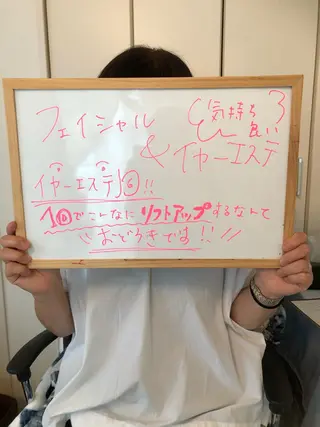 フェイシャル
気持ち
良い
&イヤーエステ
イヤーエステ
!!
1回でこんなにリフトアップするなんて
おどろきです!!